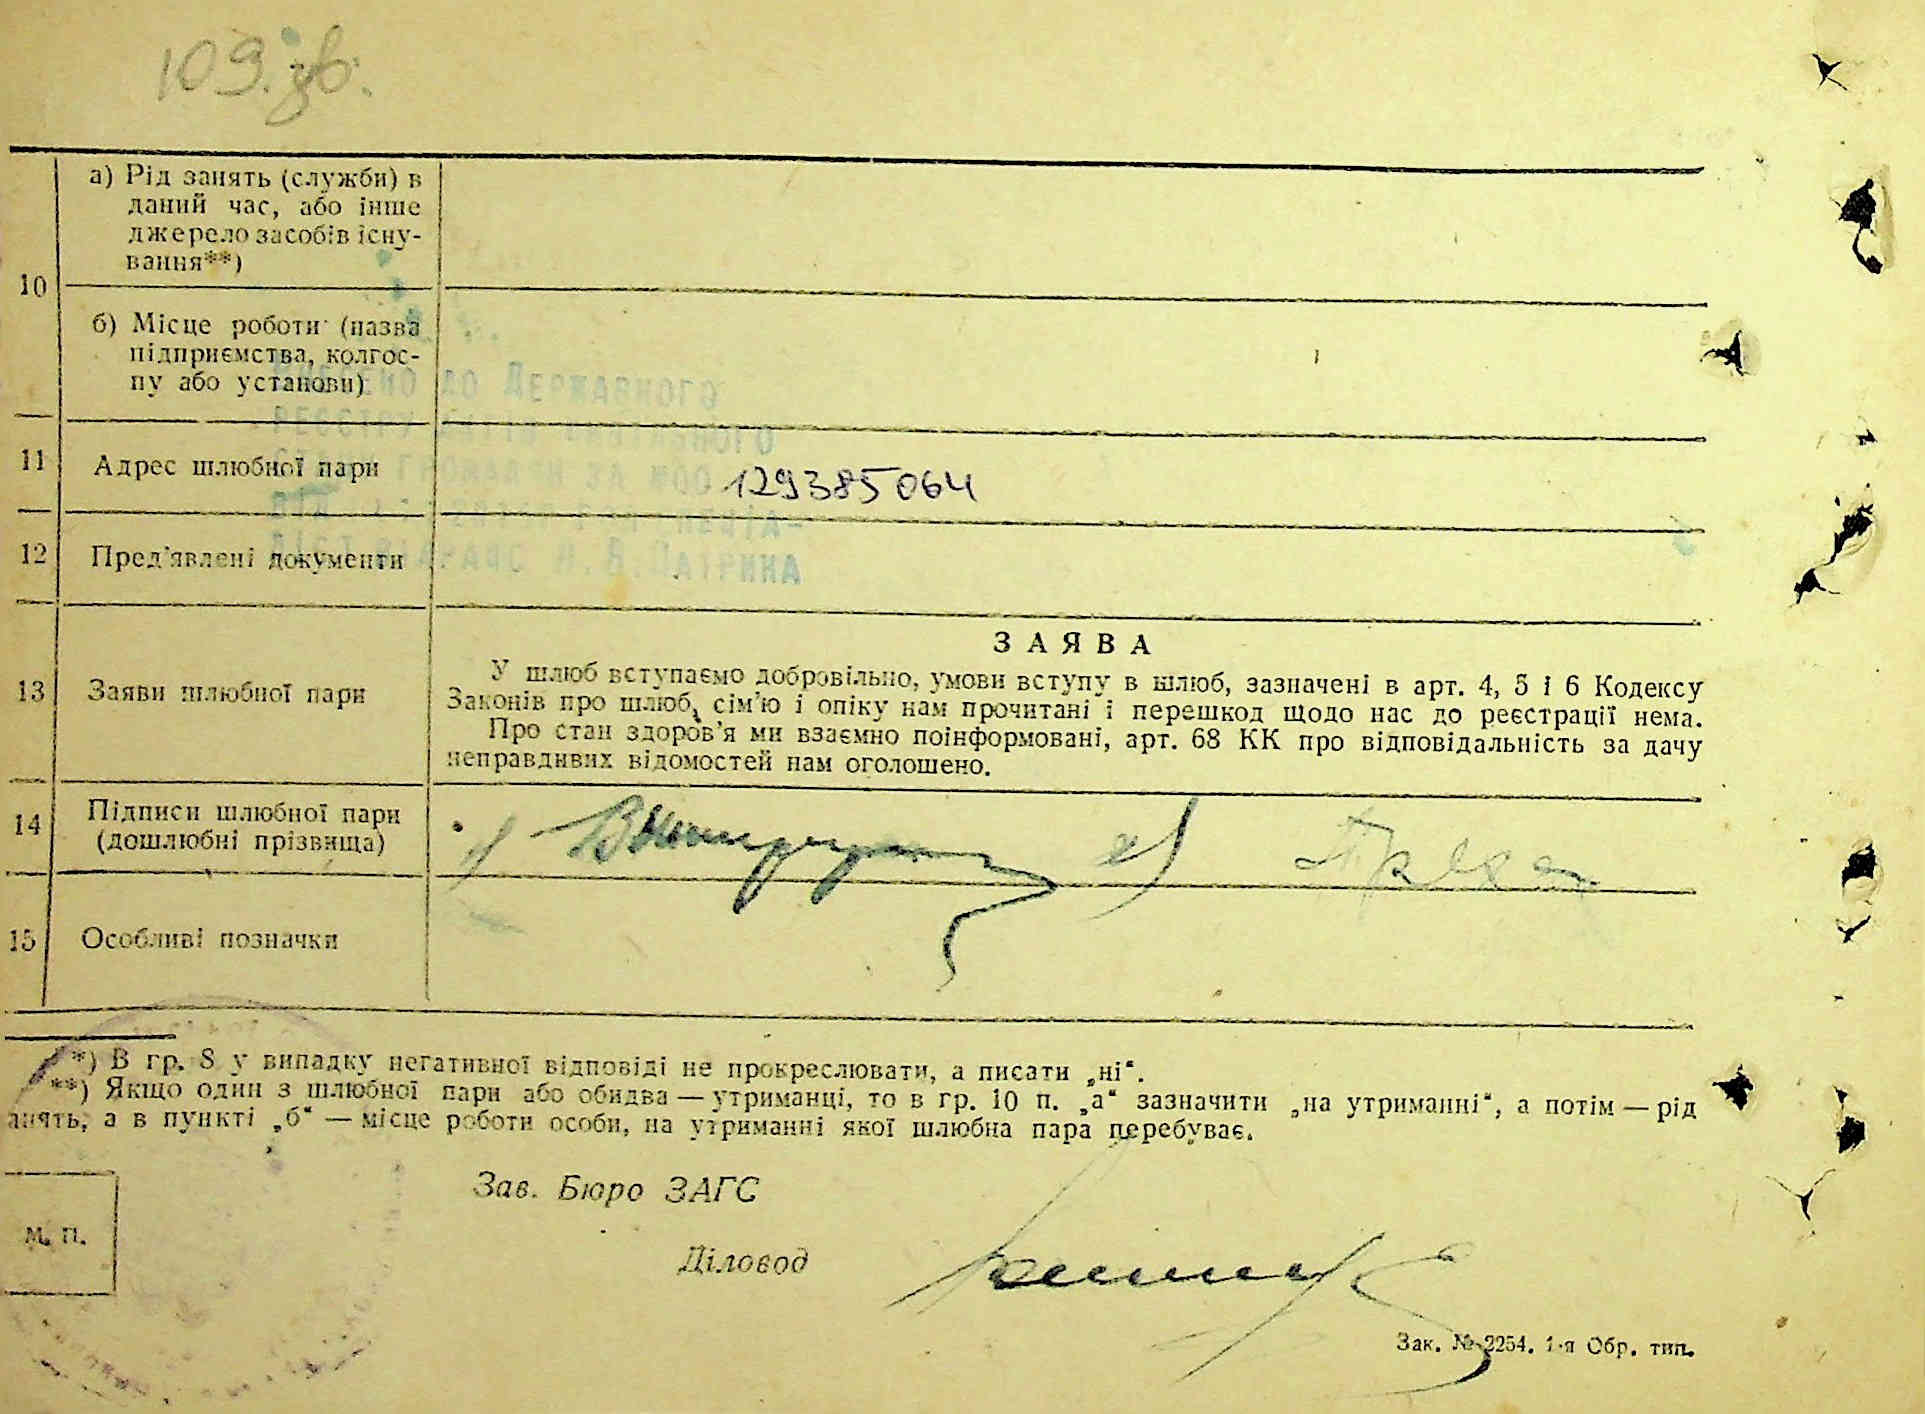 109.зв.
а) Рід занять (служби) в
даний час, або інше
джерело засобів існу-
вання**)
10
б) Місце роботи (назва
підприємства, колгос-
пу або установи)
ДО ДЕРЖАВНОГО
РЕЄСТРУ АКТІВ ЦИВІЛЬНОГО
ГРОМАДЯН ЗА №00
11 Адрес шлюбної пари 129385064
12 Пред'явлені документи
Н.В.ПАТРИНА
ЗАЯВА
13 Заяви шлюбної пари
У шлюб вступаємо добровільно, умови вступу в шлюб, зазначені в арт. 4, 5 і 6 Кодексу
Законів про шлюб, сім'ю і опіку нам прочитані і перешкод щодо нас до реєстрації нема.
Про стан здоров'я ми взаємно поінформовані, арт. 68 КК про відповідальність за дачу
неправдивих відомостей нам оголошено.
14 Підписи шлюбної пари
(дошлюбні прізвища)
1) 2)
15 Особливі позначки
*) В гр. 8 у випадку негативної відповіді не прокреслювати, а писати „ні“.
**) Якщо один з шлюбної пари або обидва — утриманці, то в гр. 10 п. „а“ зазначити „на утриманні“, а потім — рід
анять, а в пункті „б“ — місце роботи особи, на утриманні якої шлюбна пара перебуває.
Зав. Бюро ЗАГС
М. П.
Діловод
Зак. № 2254. 1-я Обр. тип.